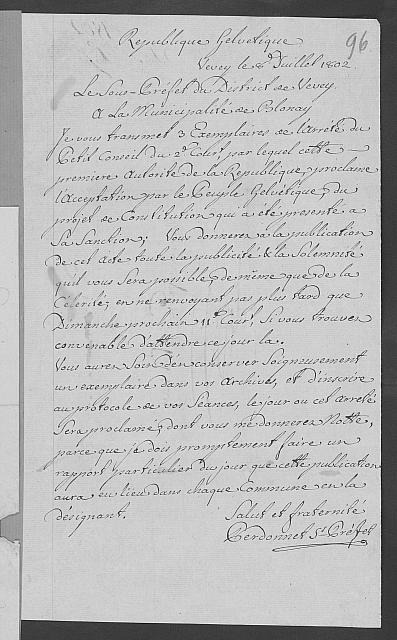 96
Republique Helvetique
Vevey le 8e Juillet 1802
Le Sous-Préfet du District de Vevey
A La Municipalité de Blonay
Je vous transmet 3 Exemplaires de l'arrêté du
Petit Conseil du 2e Court, par lequel cette
premiere Autorité de la Republique, proclame
l'Acceptation par le Peuple Helvetique, du
projet de Constitution qui a été presenté a
Sa Sanction; Vous donnerez a la publication
de cet acte toute la publicité & la Solemnité
qu'il vous Sera possible, de même que de la
Célérité; en ne renvoyant pas plus tard que
Dimanche prochain 11e Court, Si vous trouvez
convenable d'attendre ce jour la.
Vous aurez Soin d'en conserver Soigneusement
un exemplaire dans vos archives, et d'inscrire
au protocole de vos Séances, le jour ou cet arrêté
Sera proclamé; dont vous me donnerez Notte,
parce que je dois promptement faire un
rapport particulier du jour que cette publication
aura eu lieu dans chaque Commune en la
désignant.
Salut et fraternité
Perdonnet St Préfet